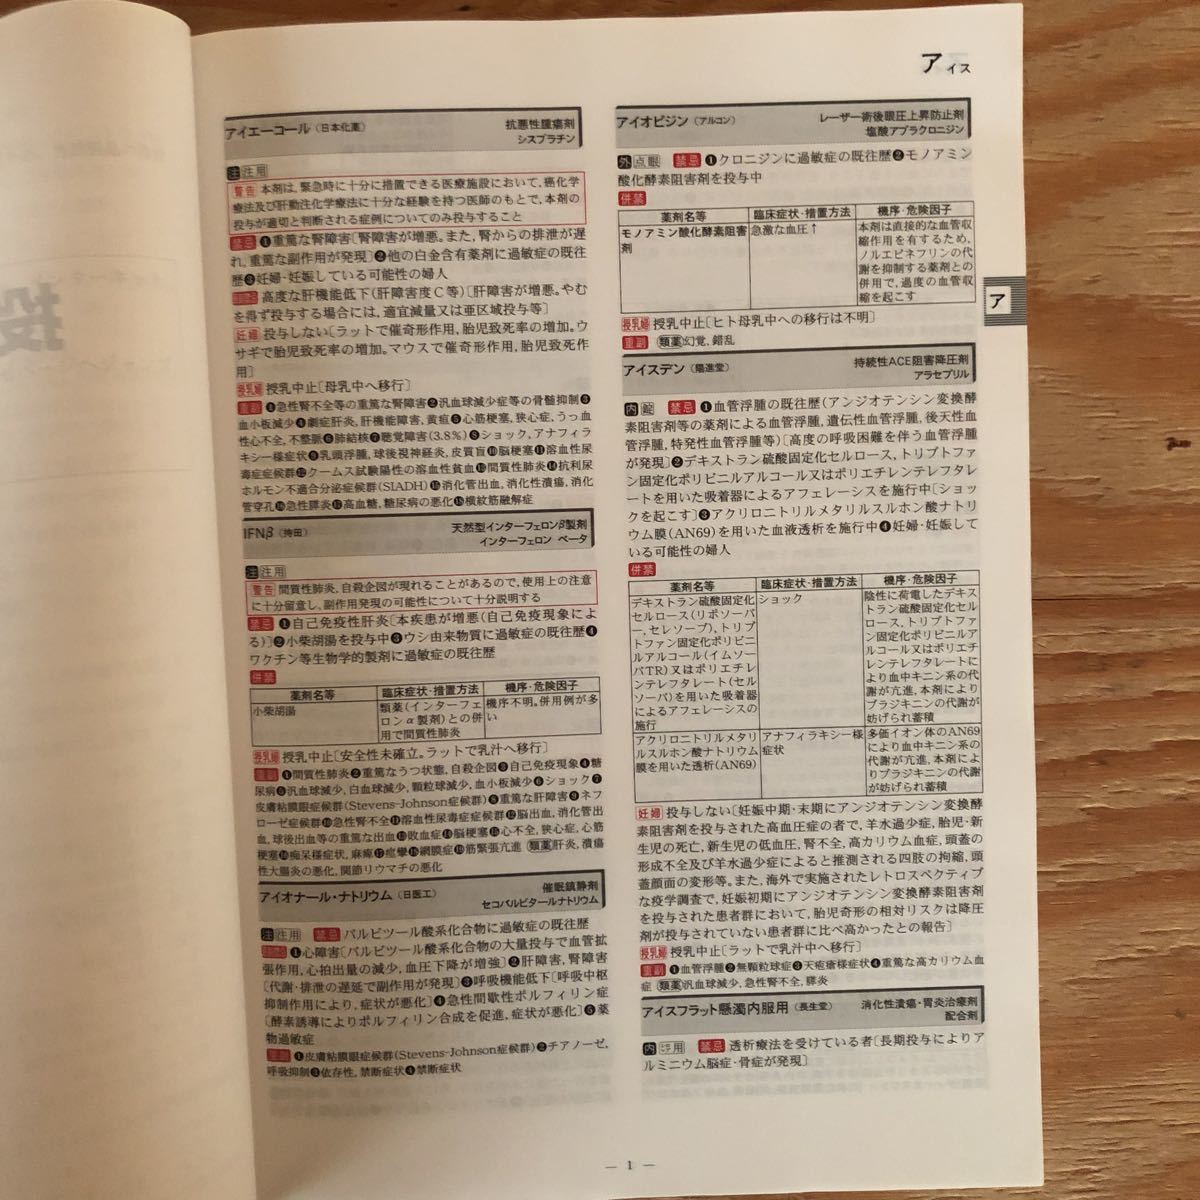 アイス
アイエーコール（日本化薬） 抗悪性腫瘍剤
シスプラチン
注 注用
警告 本剤は，緊急時に十分に措置できる医療施設において，癌化学
療法及び肝動注化学療法に十分な経験を持つ医師のもとで，本剤の
投与が適切と判断される症例についてのみ投与すること
禁忌 ❶重篤な腎障害〔腎障害が増悪。また，腎からの排泄が遅
れ，重篤な副作用が発現〕❷他の白金含有薬剤に過敏症の既往
歴❸妊婦・妊娠している可能性の婦人
高度な肝機能低下（肝障害度C等）〔肝障害が増悪。やむ
を得ず投与する場合には，適宜減量又は亜区域投与等〕
妊婦 投与しない〔ラットで催奇形作用，胎児致死率の増加。ウ
サギで胎児致死率の増加。マウスで催奇形作用，胎児致死作
用〕
授乳婦 授乳中止〔母乳中へ移行〕
重副 ❶急性腎不全等の重篤な腎障害❷汎血球減少症等の骨髄抑制❸
血小板減少❹劇症肝炎，肝機能障害，黄疸❺心筋梗塞，狭心症，うっ血
性心不全，不整脈❻肺結核❼聴覚障害（3.8%）❽ショック，アナフィラ
キシー様症状❾乳頭浮腫，球後視神経炎，皮質盲❿脳梗塞⓫溶血性尿
毒症症候群⓬クームス試験陽性の溶血性貧血⓭間質性肺炎⓮抗利尿
ホルモン不適合分泌症候群（SIADH）⓯消化管出血，消化性潰瘍，消化
管穿孔⓰急性膵炎⓱高血糖，糖尿病の悪化⓲横紋筋融解症
IFNβ（持田） 天然型インターフェロンβ製剤
インターフェロン ベータ
注 注用
警告 間質性肺炎，自殺企図が現れることがあるので，使用上の注意
に十分留意し，副作用発現の可能性について十分説明する
禁忌 ❶自己免疫性肝炎〔本疾患が増悪（自己免疫現象によ
る）〕❷小柴胡湯を投与中❸ウシ由来物質に過敏症の既往歴❹
ワクチン等生物学的製剤に過敏症の既往歴
併禁
薬剤名等 臨床症状・措置方法 機序・危険因子
小柴胡湯 類薬（インターフェ 機序不明。併用例が多
ロンα製剤）との併 い
用で間質性肺炎
授乳婦 授乳中止〔安全性未確立。ラットで乳汁へ移行〕
重副 ❶間質性肺炎❷重篤なうつ状態，自殺企図❸自己免疫現象❹糖
尿病❺汎血球減少，白血球減少，顆粒球減少，血小板減少❻ショック❼
皮膚粘膜眼症候群（Stevens-Johnson症候群）❽重篤な肝障害❾ネフ
ローゼ症候群❿急性腎不全⓫溶血性尿毒症症候群⓬脳出血，消化管出
血，球後出血等の重篤な出血⓭敗血症⓮脳梗塞⓯心不全，狭心症，心筋
梗塞⓰痴呆様症状，麻痺⓱痙攣⓲網膜症⓳筋緊張亢進 類薬 肝炎，潰瘍
性大腸炎の悪化，関節リウマチの悪化
アイオナール・ナトリウム（日医工） 催眠鎮静剤
セコバルビタールナトリウム
注 注用 禁忌 バルビツール酸系化合物に過敏症の既往歴
❶心障害〔バルビツール酸系化合物の大量投与で血管拡
張作用，心拍出量の減少，血圧下降が増強〕❷肝障害，腎障害
〔代謝・排泄の遅延で副作用が発現〕❸呼吸機能低下〔呼吸中枢
抑制作用により，症状が悪化〕❹急性間歇性ポルフィリン症
〔酵素誘導によりポルフィリン合成を促進，症状が悪化〕❺薬
物過敏症
重副 ❶皮膚粘膜眼症候群（Stevens-Johnson症候群）❷チアノーゼ，
呼吸抑制❸依存性，禁断症状❹禁断症状
アイオピジン（アルコン） レーザー術後眼圧上昇防止剤
塩酸アプラクロニジン
外 点眼 禁忌 ❶クロニジンに過敏症の既往歴❷モノアミン
酸化酵素阻害剤を投与中
併禁
薬剤名等 臨床症状・措置方法 機序・危険因子
モノアミン酸化酵素阻害 急激な血圧↑ 本剤は直接的な血管収
剤 縮作用を有するため，
ノルエピネフリンの代
謝を抑制する薬剤との
併用で，過度の血管収
縮を起こす
授乳婦 授乳中止〔ヒト母乳中への移行は不明〕
重副 類薬 幻覚，錯乱
ア
アイスデン（陽進堂） 持続性ACE阻害降圧剤
アラセプリル
内 錠 禁忌 ❶血管浮腫の既往歴（アンジオテンシン変換酵
素阻害剤等の薬剤による血管浮腫，遺伝性血管浮腫，後天性血
管浮腫，特発性血管浮腫等）〔高度の呼吸困難を伴う血管浮腫
が発現〕❷デキストラン硫酸固定化セルロース，トリプトファ
ン固定化ポリビニルアルコール又はポリエチレンテレフタレ
ートを用いた吸着器によるアフェレーシスを施行中〔ショッ
クを起こす〕❸アクリロニトリルメタリルスルホン酸ナトリ
ウム膜（AN69）を用いた血液透析を施行中❹妊婦・妊娠して
いる可能性の婦人
併禁
薬剤名等 臨床症状・措置方法 機序・危険因子
デキストラン硫酸固定化 ショック 陰性に荷電したデキス
セルロース（リポソーバ トラン硫酸固定化セル
ー，セレソーブ），トリプト ロース，トリプトファ
ファン固定化ポリビニル ン固定化ポリビニルア
アルコール（イムソー ルコール又はポリエチ
バTR）又はポリエチレ レンテレフタレートに
ンテレフタレート（セル より血中キニン系の代
ソーバ）を用いた吸着器 謝が亢進，本剤により
によるアフェレーシスの ブラジキニンの代謝が
施行 妨げられ蓄積
アクリロニトリルメタリ アナフィラキシー様 多価イオン体のAN69
ルスルホン酸ナトリウム 症状 により血中キニン系の
膜を用いた透析（AN69） 代謝が亢進，本剤によ
りブラジキニンの代謝
が妨げられ蓄積
妊婦 投与しない〔妊娠中期・末期にアンジオテンシン変換酵
素阻害剤を投与された高血圧症の者で，羊水過少症，胎児・新
生児の死亡，新生児の低血圧，腎不全，高カリウム血症，頭蓋の
形成不全及び羊水過少症によると推測される四肢の拘縮，頭
蓋顔面の変形等。また，海外で実施されたレトロスペクティブ
な疫学調査で，妊娠初期にアンジオテンシン変換酵素阻害剤
を投与された患者群において，胎児奇形の相対リスクは降圧
剤が投与されていない患者群に比べ高かったとの報告〕
授乳婦 授乳中止〔ラットで乳汁中へ移行〕
重副 ❶血管浮腫❷無顆粒球症❸天疱瘡様症状❹重篤な高カリウム血
症 類薬 汎血球減少，急性腎不全，膵炎
アイスフラット懸濁内服用（長生堂） 消化性潰瘍・胃炎治療剤
配合剤
内 禁忌 透析療法を受けている者〔長期投与によりア
ルミニウム脳症・骨症が発現〕
— 1 —